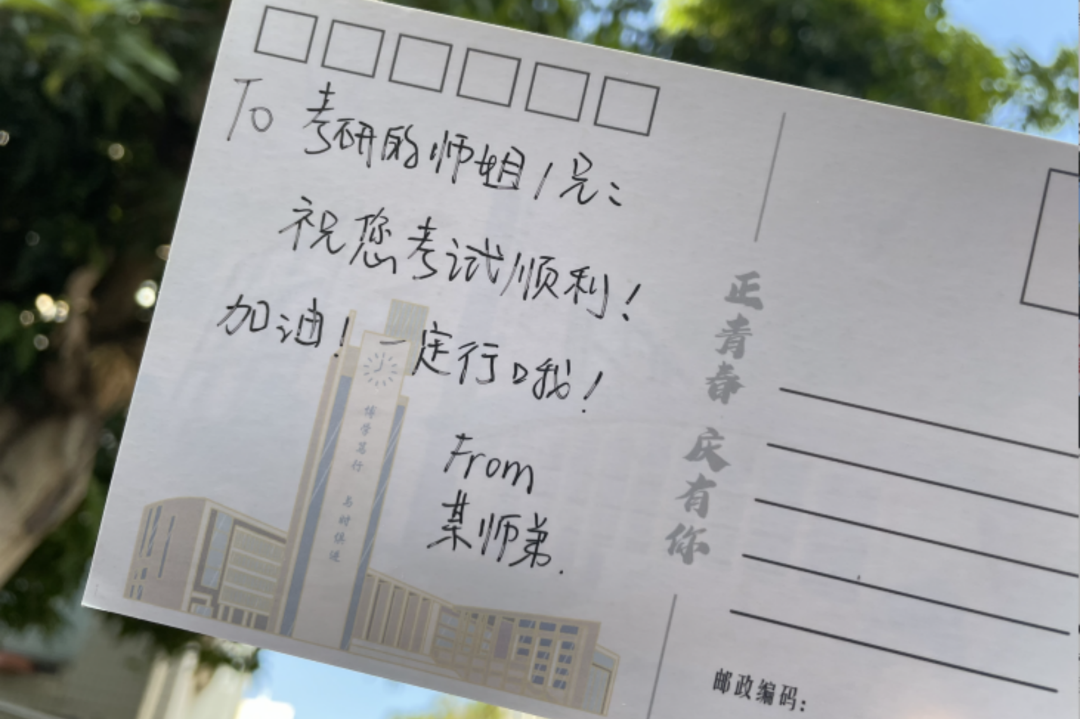 To 考研的师姐/兄:
祝您考试顺利!
加油!一定行哦!
From
某师弟.
博学笃行 与时俱进
正青春 庆有你
邮政编码: